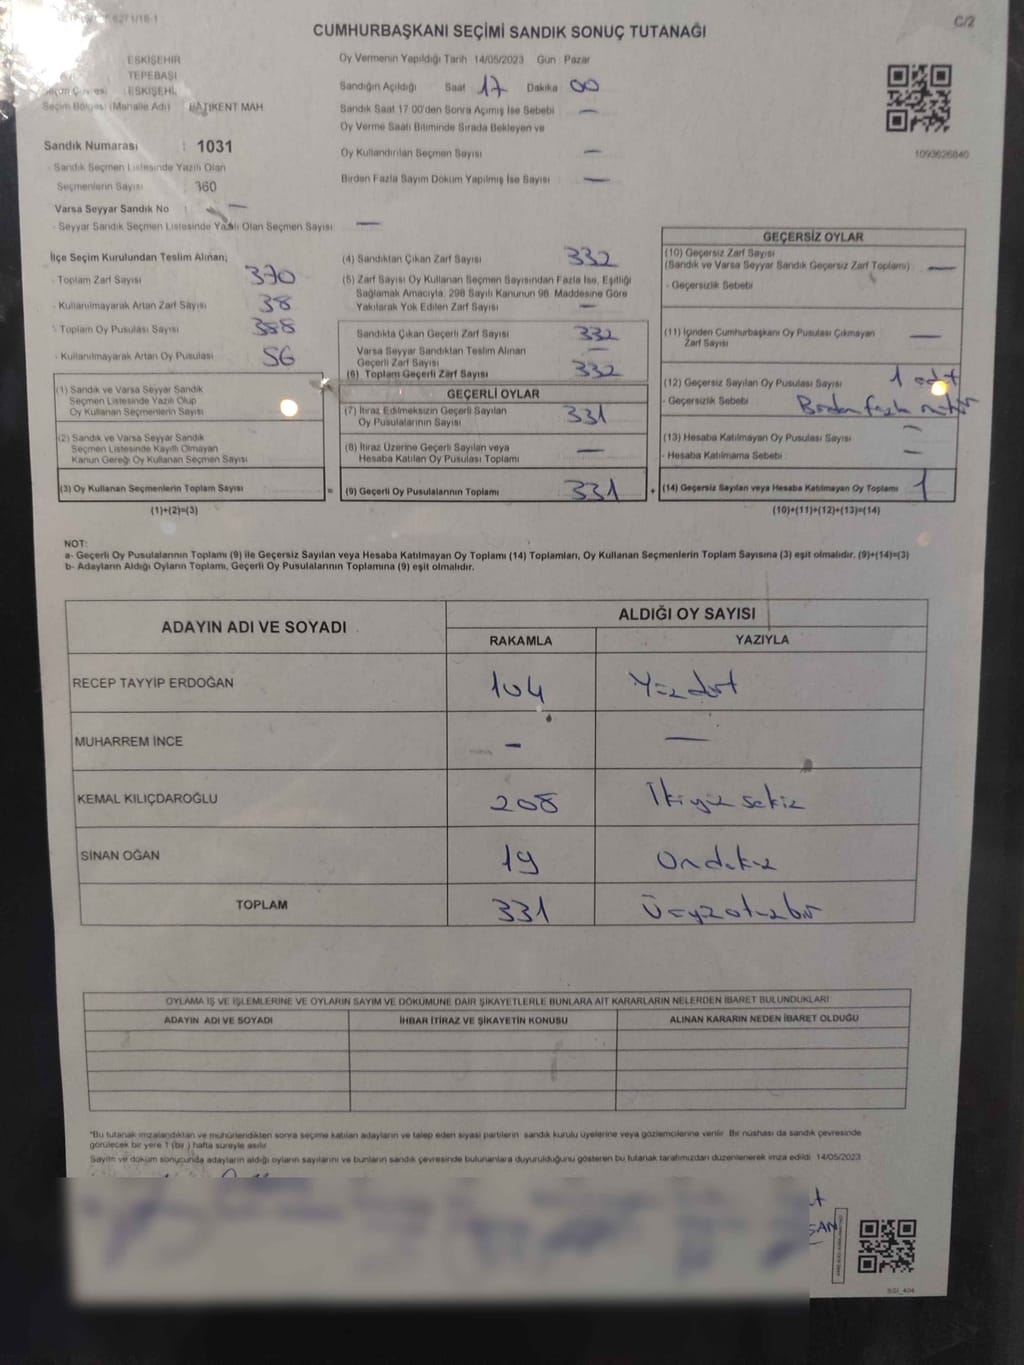 C/2
CUMHURBAŞKANI SEÇİMİ SANDIK SONUÇ TUTANAĞI
ESKİŞEHİR
TEPEBAŞI
ESKİŞEHİ
Seçim Bölgesi (Mahalle Adı) BATIKENT MAH
Sandık Numarası : 1031
- Sandık Seçmen Listesinde Yazılı Olan
Seçmenlerin Sayısı : 360
Varsa Seyyar Sandık No : —
- Seyyar Sandık Seçmen Listesinde Yazılı Olan Seçmen Sayısı : —
Oy Vermenin Yapıldığı Tarih 14/05/2023 Gün : Pazar
Sandığın Açıldığı Saat 17 Dakika 00
Sandık Saat 17 00'den Sonra Açımış İse Sebebi —
Oy Verme Saati Bitiminde Sırada Bekleyen ve
Oy Kullandırılan Seçmen Sayısı —
Birden Fazla Sayım Döküm Yapılmış İse Sayısı —
1093626840
İlçe Seçim Kurulundan Teslim Alınan;
- Toplam Zarf Sayısı 370
- Kullanılmayarak Artan Zarf Sayısı 38
- Toplam Oy Pusulası Sayısı 388
- Kullanılmayarak Artan Oy Pusulası 56
(1) Sandık ve Varsa Seyyar Sandık
Seçmen Listesinde Yazılı Olup
Oy Kullanan Seçmenlerin Sayısı
(2) Sandık ve Varsa Seyyar Sandık
Seçmen Listesinde Kayıtlı Olmayan
Kanun Gereği Oy Kullanan Seçmen Sayısı
(3) Oy Kullanan Seçmenlerin Toplam Sayısı
(1)+(2)=(3)
(4) Sandıktan Çıkan Zarf Sayısı 332
(5) Zarf Sayısı Oy Kullanan Seçmen Sayısından Fazla İse, Eşitliği
Sağlamak Amacıyla, 298 Sayılı Kanunun 98. Maddesine Göre
Yakılarak Yok Edilen Zarf Sayısı —
Sandıkta Çıkan Geçerli Zarf Sayısı 332
Varsa Seyyar Sandıktan Teslim Alınan
Geçerli Zarf Sayısı —
(6) Toplam Geçerli Zarf Sayısı 332
GEÇERLİ OYLAR
(7) İtiraz Edilmeksizin Geçerli Sayılan
Oy Pusulalarının Sayısı 331
(8) İtiraz Üzerine Geçerli Sayılan veya
Hesaba Katılan Oy Pusulası Toplamı —
= (9) Geçerli Oy Pusulalarının Toplamı 331 +
GEÇERSİZ OYLAR
(10) Geçersiz Zarf Sayısı
(Sandık ve Varsa Seyyar Sandık Geçersiz Zarf Toplamı) —
- Geçersizlik Sebebi
(11) İçinden Cumhurbaşkanı Oy Pusulası Çıkmayan
Zarf Sayısı —
(12) Geçersiz Sayılan Oy Pusulası Sayısı 1 adet
- Geçersizlik Sebebi : Birden fazla mühür
(13) Hesaba Katılmayan Oy Pusulası Sayısı —
- Hesaba Katılmama Sebebi —
(14) Geçersiz Sayılan veya Hesaba Katılmayan Oy Toplamı 1
(10)+(11)+(12)+(13)=(14)
NOT:
a- Geçerli Oy Pusulalarının Toplamı (9) ile Geçersiz Sayılan veya Hesaba Katılmayan Oy Toplamı (14) Toplamları, Oy Kullanan Seçmenlerin Toplam Sayısına (3) eşit olmalıdır. (9)+(14)=(3)
b- Adayların Aldığı Oyların Toplamı, Geçerli Oy Pusulalarının Toplamına (9) eşit olmalıdır.
ADAYIN ADI VE SOYADI ALDIĞI OY SAYISI
RAKAMLA YAZIYLA
RECEP TAYYIP ERDOĞAN 104 Yüz dört
MUHARREM İNCE - —
KEMAL KILIÇDAROĞLU 208 İkiyüz sekiz
SİNAN OĞAN 19 Ondokuz
TOPLAM 331 Üçyüzotuzbir
OYLAMA İŞ VE İŞLEMLERİNE VE OYLARIN SAYIM VE DÖKÜMÜNE DAİR ŞİKAYETLERLE BUNLARA AİT KARARLARIN NELERDEN İBARET BULUNDUKLARI
ADAYIN ADI VE SOYADI İHBAR İTİRAZ VE ŞİKAYETİN KONUSU ALINAN KARARIN NEDEN İBARET OLDUĞU
"Bu tutanak imzalandıktan ve mühürlendikten sonra seçime katılan adayların ve talep eden siyasi partilerin sandık kurulu üyelerine veya gözlemcilerine verilir. Bir nüshası da sandık çevresinde
görülecek bir yere 1 (bir ) hafta süreyle asılır.
Sayım ve döküm sonucunda adayların aldığı oyların sayılarını ve bunların sandık çevresinde bulunanlara duyurulduğunu gösteren bu tutanak tarafımızdan düzenlenerek imza edildi. 14/05/2023